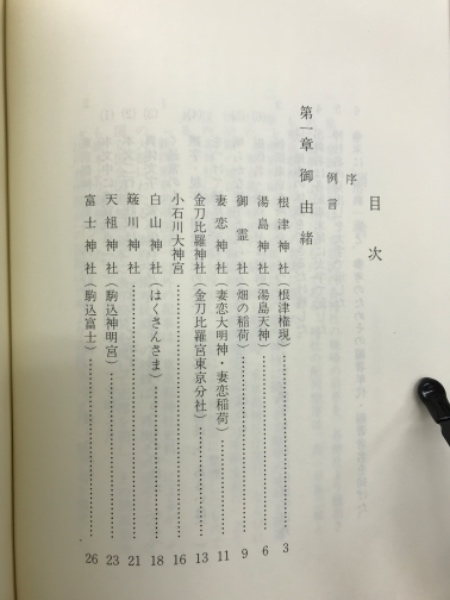 目次
序
例言
第一章 御由緒
根津神社(根津権現)……………………3
湯島神社(湯島天神)……………………6
御霊社(畑の稲荷)……………………9
妻恋神社(妻恋大明神・妻恋稲荷)……………………11
金刀比羅神社(金刀比羅宮東京分社)……………………13
小石川大神宮……………………16
白山神社(はくさんさま)……………………18
簸川神社……………………21
天祖神社(駒込神明宮)……………………23
富士神社(駒込富士)……………………26